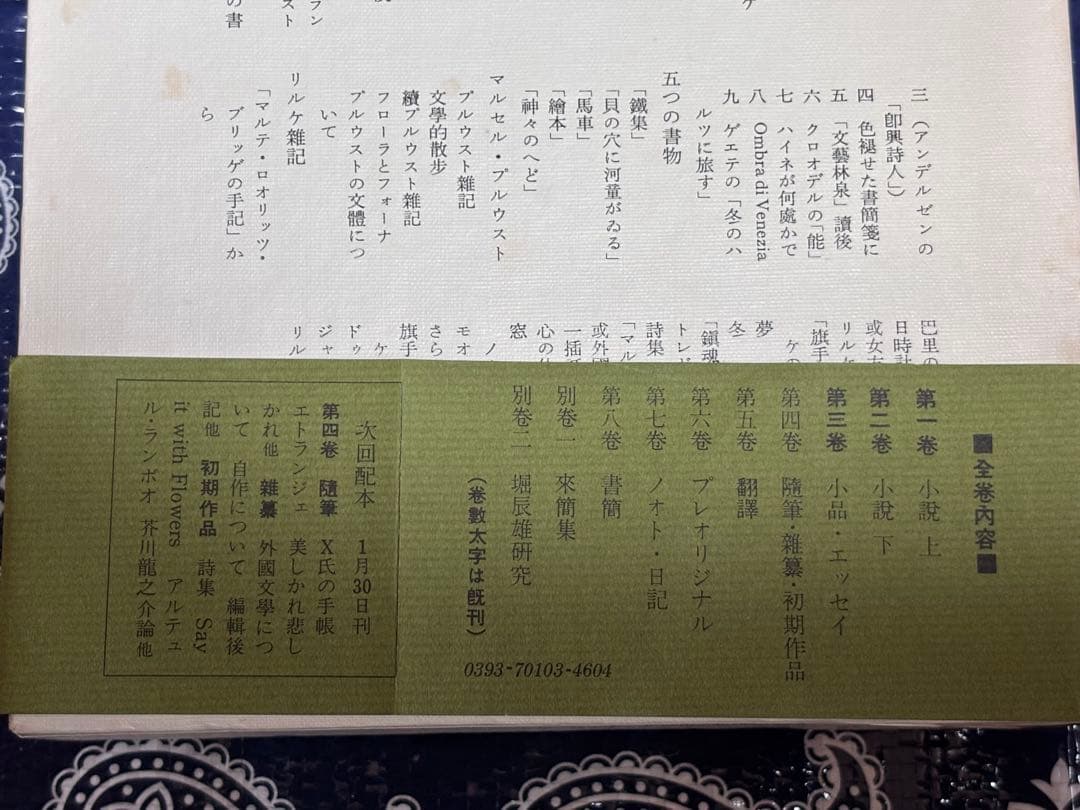 ラン
スト
の書
三（アンデルゼンの
「卽興詩人」）
四　色褪せた書簡箋に
五　「文藝林泉」讀後
六　クロオデルの「能」
七　ハイネが何處かで
八　Ombra di Venezia
九　ゲエテの「冬のハ
ルツに旅す」
五つの書物
「鐵集」
「貝の穴に河童がゐる」
「馬車」
「繪本」
「神々のへど」
マルセル・プルウスト
プルウスト雜記
文學的散步
續プルウスト雜記
フローラとフォーナ
プルウストの文體につ
いて
リルケ雜記
「マルテ・ロオリッツ・
ブリッゲの手記」か
ら
巴里の
日時計
或女友
リルケ
「旗手
ケの
夢
冬
「鎭魂
トレド
詩集
「マル
或外國
一插
心の
窓
ノ
モオ
さら
旗手
ケ
ドゥ
ジャ
リル
■全卷內容■
第一卷　小說　上
第二卷　小說　下
第三卷　小品・エッセイ
第四卷　隨筆・雜纂・初期作品
第五卷　翻譯
第六卷　プレオリジナル
第七卷　ノオト・日記
第八卷　書簡
別卷一　來簡集
別卷二　堀辰雄硏究
（卷數太字は旣刊）
0393-70103-4604
次回配本　1月30日刊
第四卷　隨筆　X氏の手帳
エトランジェ　美しかれ悲し
かれ他　雜纂　外國文學につ
いて　自作について　編輯後
記他　初期作品　詩集　Say
it with Flowers　アルテュ
ル・ランボオ　芥川龍之介論他